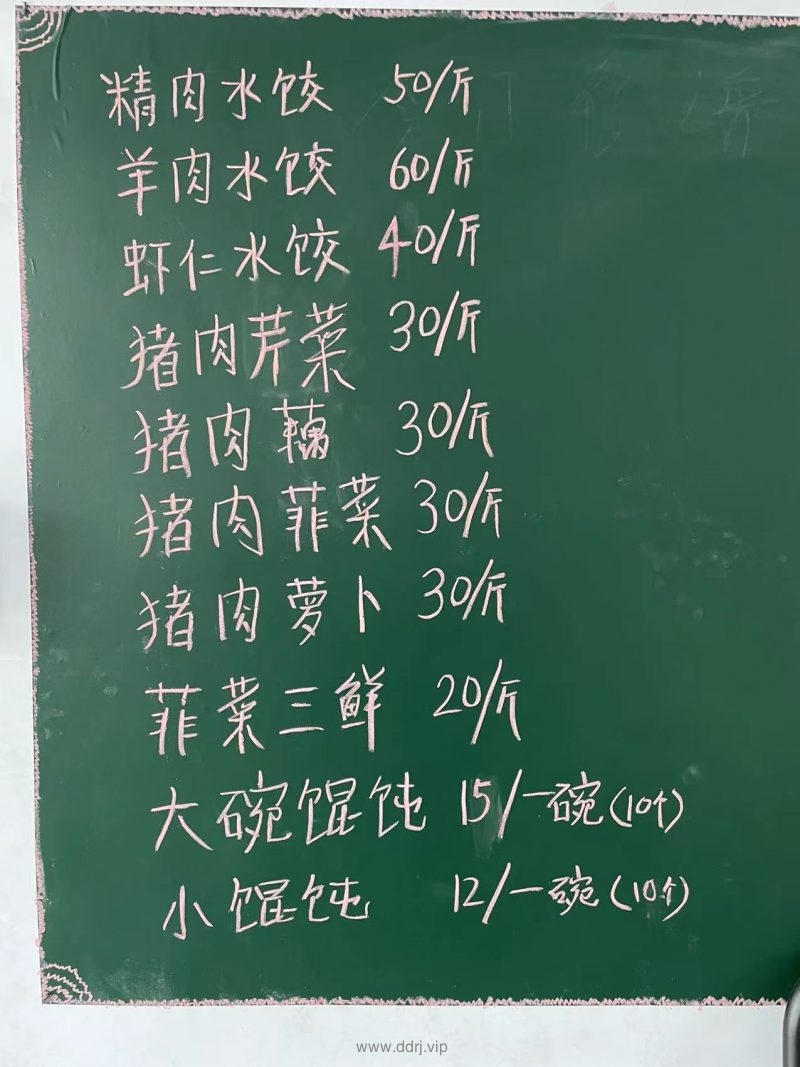 精肉水饺 50/斤
羊肉水饺 60/斤
虾仁水饺 40/斤
猪肉芹菜 30/斤
猪肉藕 30/斤
猪肉菲菜 30/斤
猪肉萝卜 30/斤
菲菜三鲜 20/斤
大碗馄饨 15/一碗(10个)
小馄饨 12/一碗(10个)
www.ddrj.vip